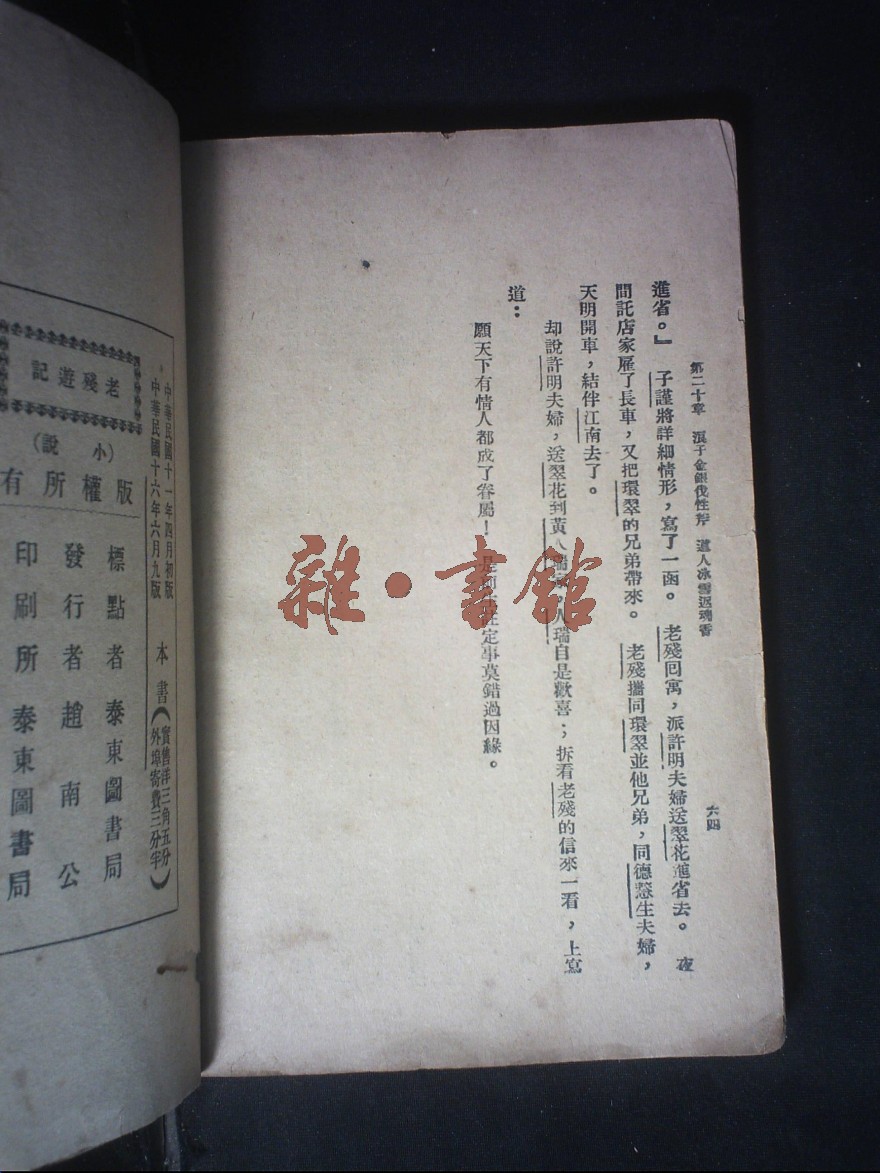 第二十章 浪子金銀伐性斧 道人冰雪返魂香
六四
進省。』 子謹將詳細情形，寫了一函。 老殘回寓，派許明夫婦送翠花進省去。 夜
間託店家雇了長車，又把環翠的兄弟帶來。 老殘攜同環翠並他兄弟，同德慧生夫婦，
天明開車，結伴江南去了。
却說許明夫婦，送翠花到黃人瑞家，人瑞自是歡喜；拆看老殘的信來一看，上寫
道：
願天下有情人都成了眷屬！是前生註定事莫錯過因緣。
雜·書館
中華民國十一年四月初版
中華民國十六年六月九版
本書（實售洋三角五分
外埠寄費三分半）
老殘遊記
（小說）
版權所有
標點者 泰東圖書局
發行者 趙南公
印刷所 泰東圖書局